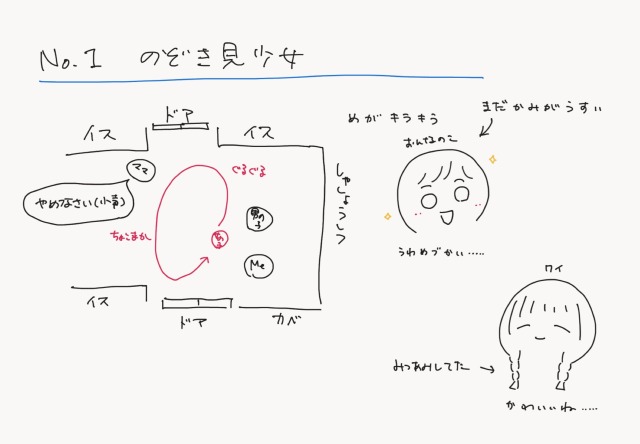 No.1 のぞき見少女
ドア
イス
イス
ママ
やめなさい(小声)
ぐるぐる
ちょこまか
女の子
男の子
Me
しゃしょうしつ
イス
ドア
カベ
めがキラキラ
まだかみがうすい
おんなのこ
うわめづかい.....
ワイ
みつあみしてた
かわいいね.....